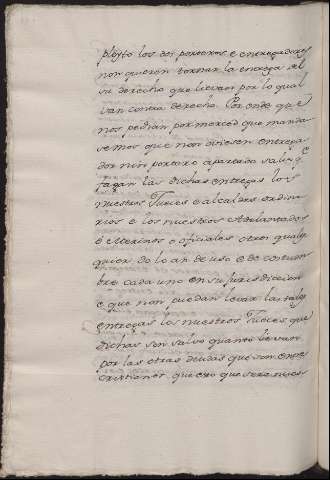 pleyto los dos porteros e entregadores
non quieren tornar la entrega del
su derecho que llevan por lo qual
van contra derecho. Por ende que
nos pedian por merced que manda
semos que non oviesen entrega
dor nin portero apartado salvo q.
fagan las dichas entregas los
nuestros Jueces e alcaldes ordina
rios e los nuestros Adelantados
e Merinos e oficiales otros quales
quier do lo an de uso e de costum
bre cada uno en su jurisdiccion
e que non puedan levar las tales
entregas los nuestros Jueces que
dichos son salvo quanto lievan
por las otras deudas que son entre
cristianos, que creo que sera nues